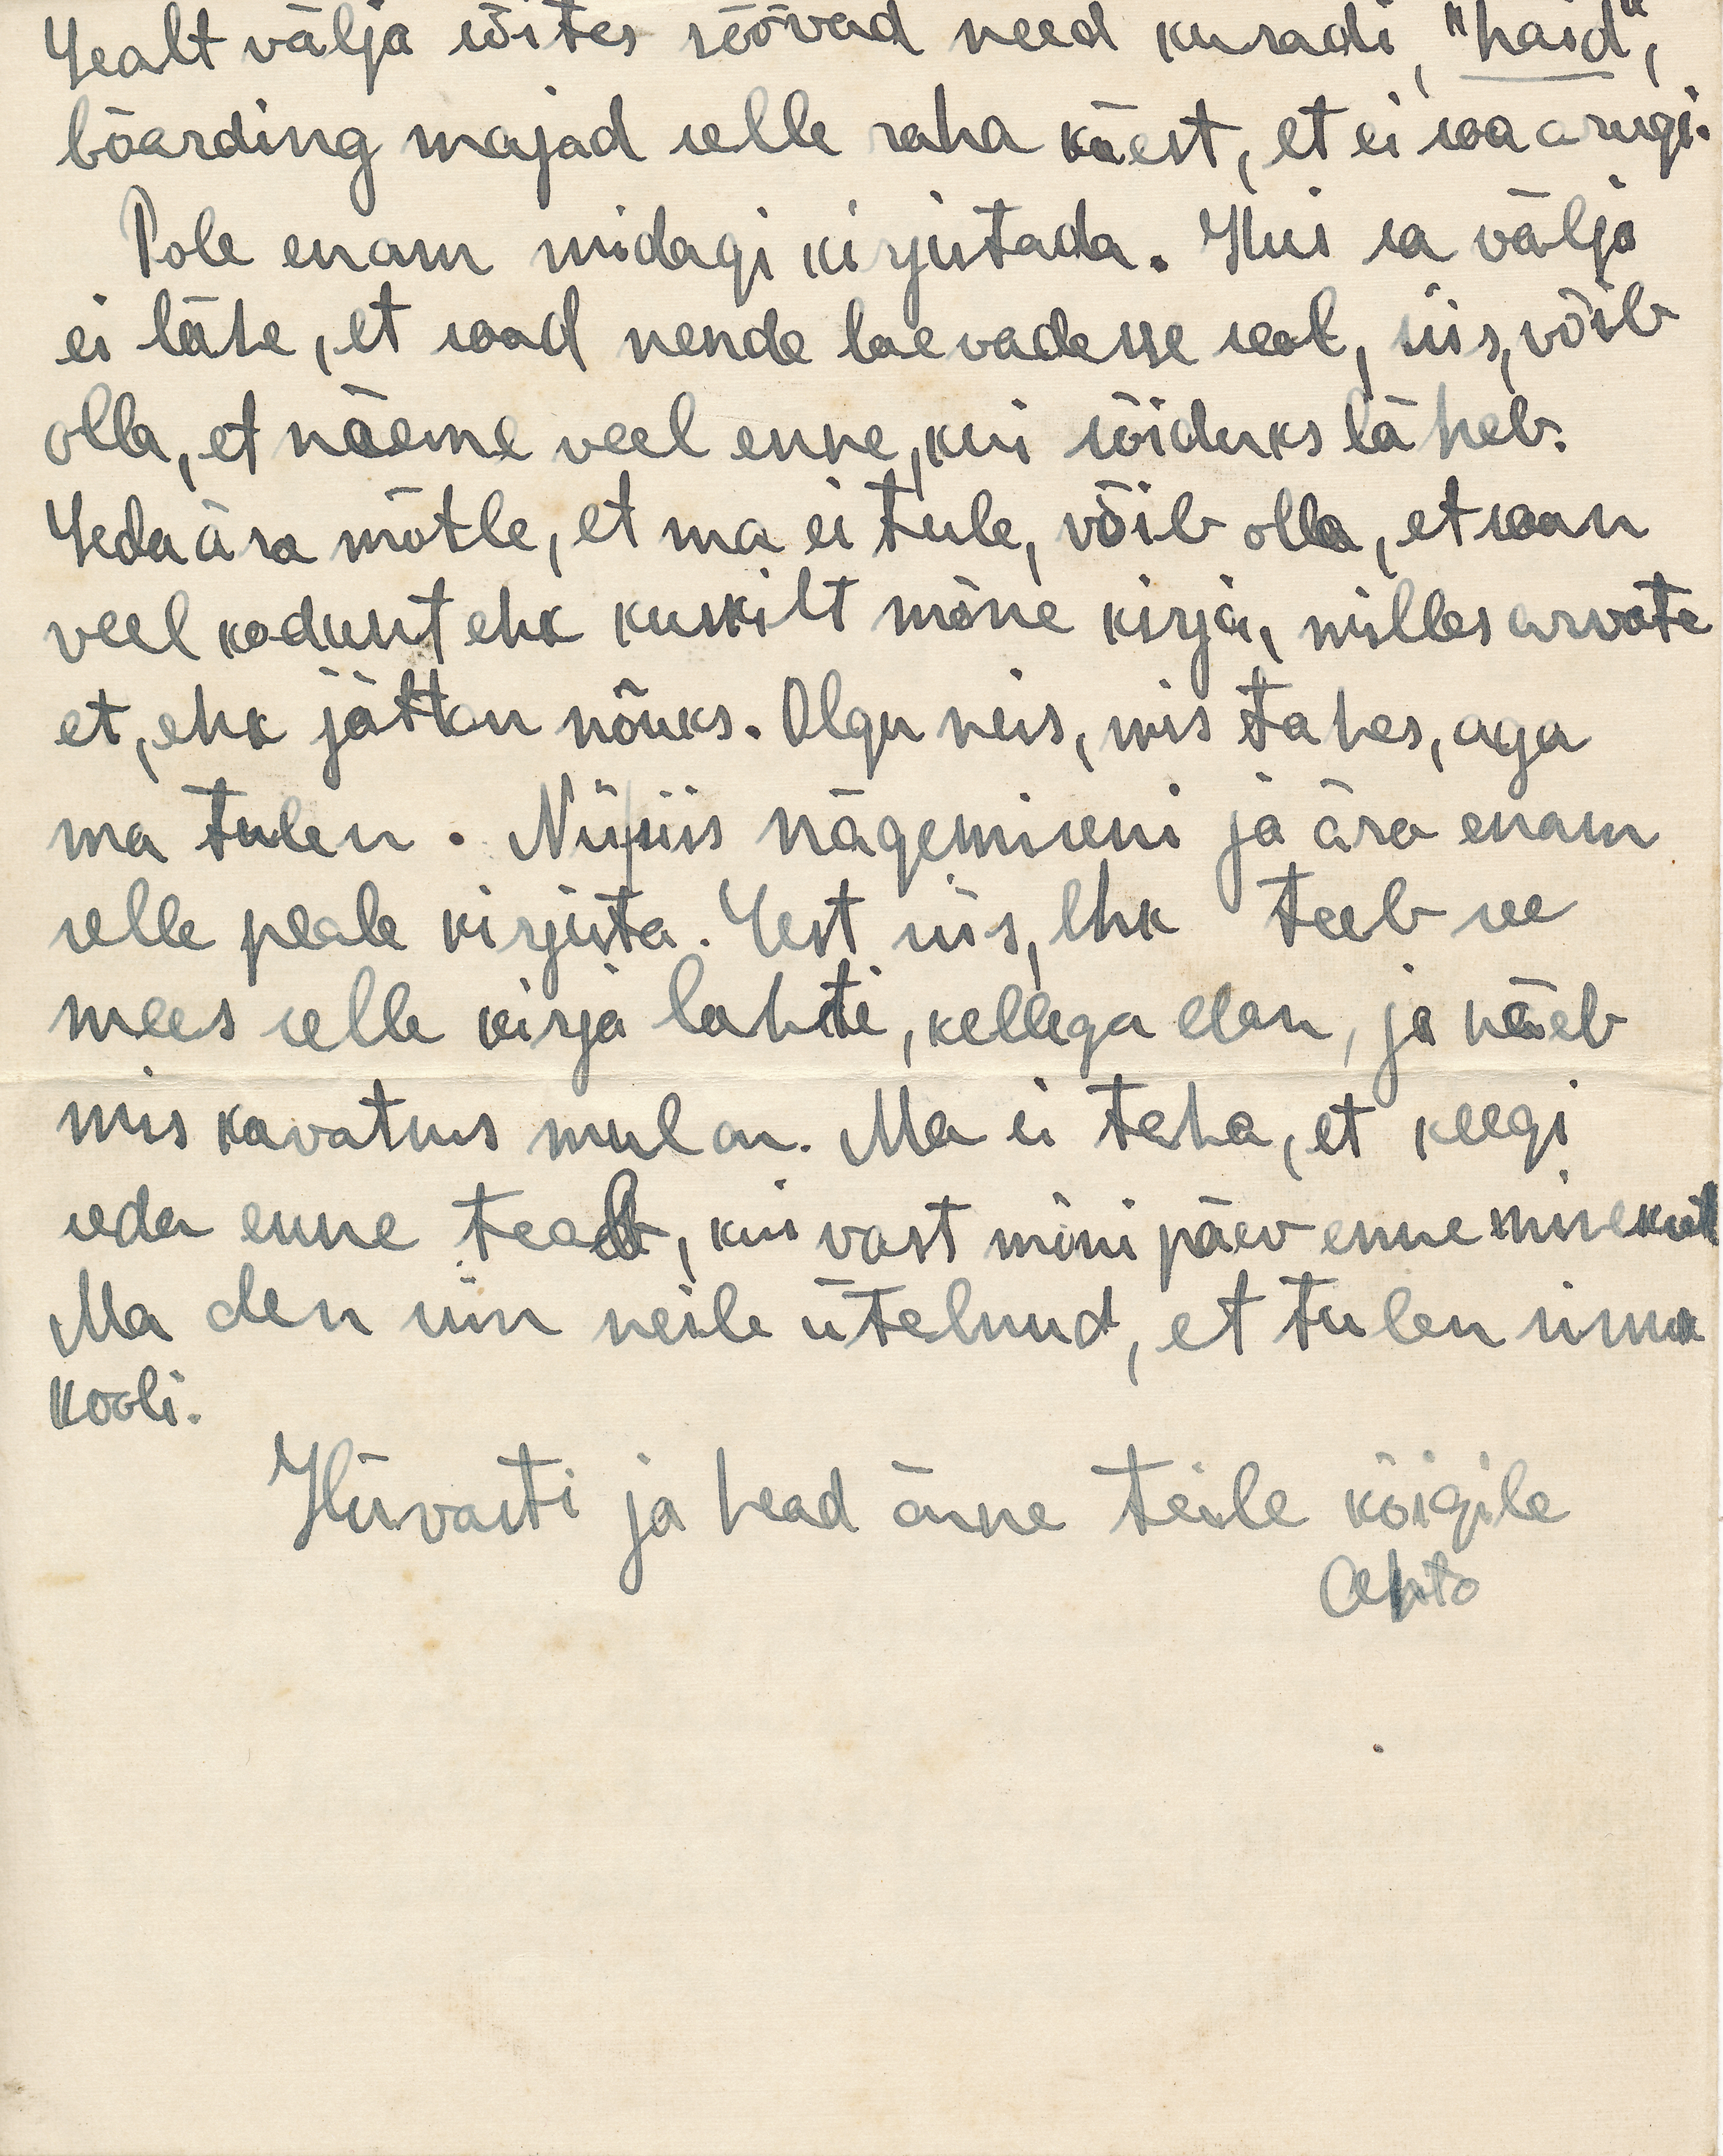 Sealt välja sõites söövad need kuradi, "haid",
bõarding majad selle raha käest, et ei saa arugi.
Pole enam midagi kirjutada. Kui sa välja
ei lähe, et saad nende laevadesse seal, siis, võib
olla, et näeme veel enne, kui sõiduks läheb.
Seda ära mõtle, et ma ei tule, võib olla, et saan
veel kodunt ehk kuskilt mõne kirja, milles arvate
et, ehk jättan nõuks. Olgu neis, mis tahes, aga
ma tulen. Nii, siis nägemiseni ja ära enam
selle peale kirjuta. Sest siis, ehk teeb see
mees selle kirja lahti, kellega elan, ja näeb
mis kavatsus mul on. Ma ei taha, et keegi
seda enne teab, kui vast mõni päev enne minekut
Ma olen siin neile ütelnud, et tulen sinna
kooli.
Hüvasti ja head õnne teile kõigile
Ahto